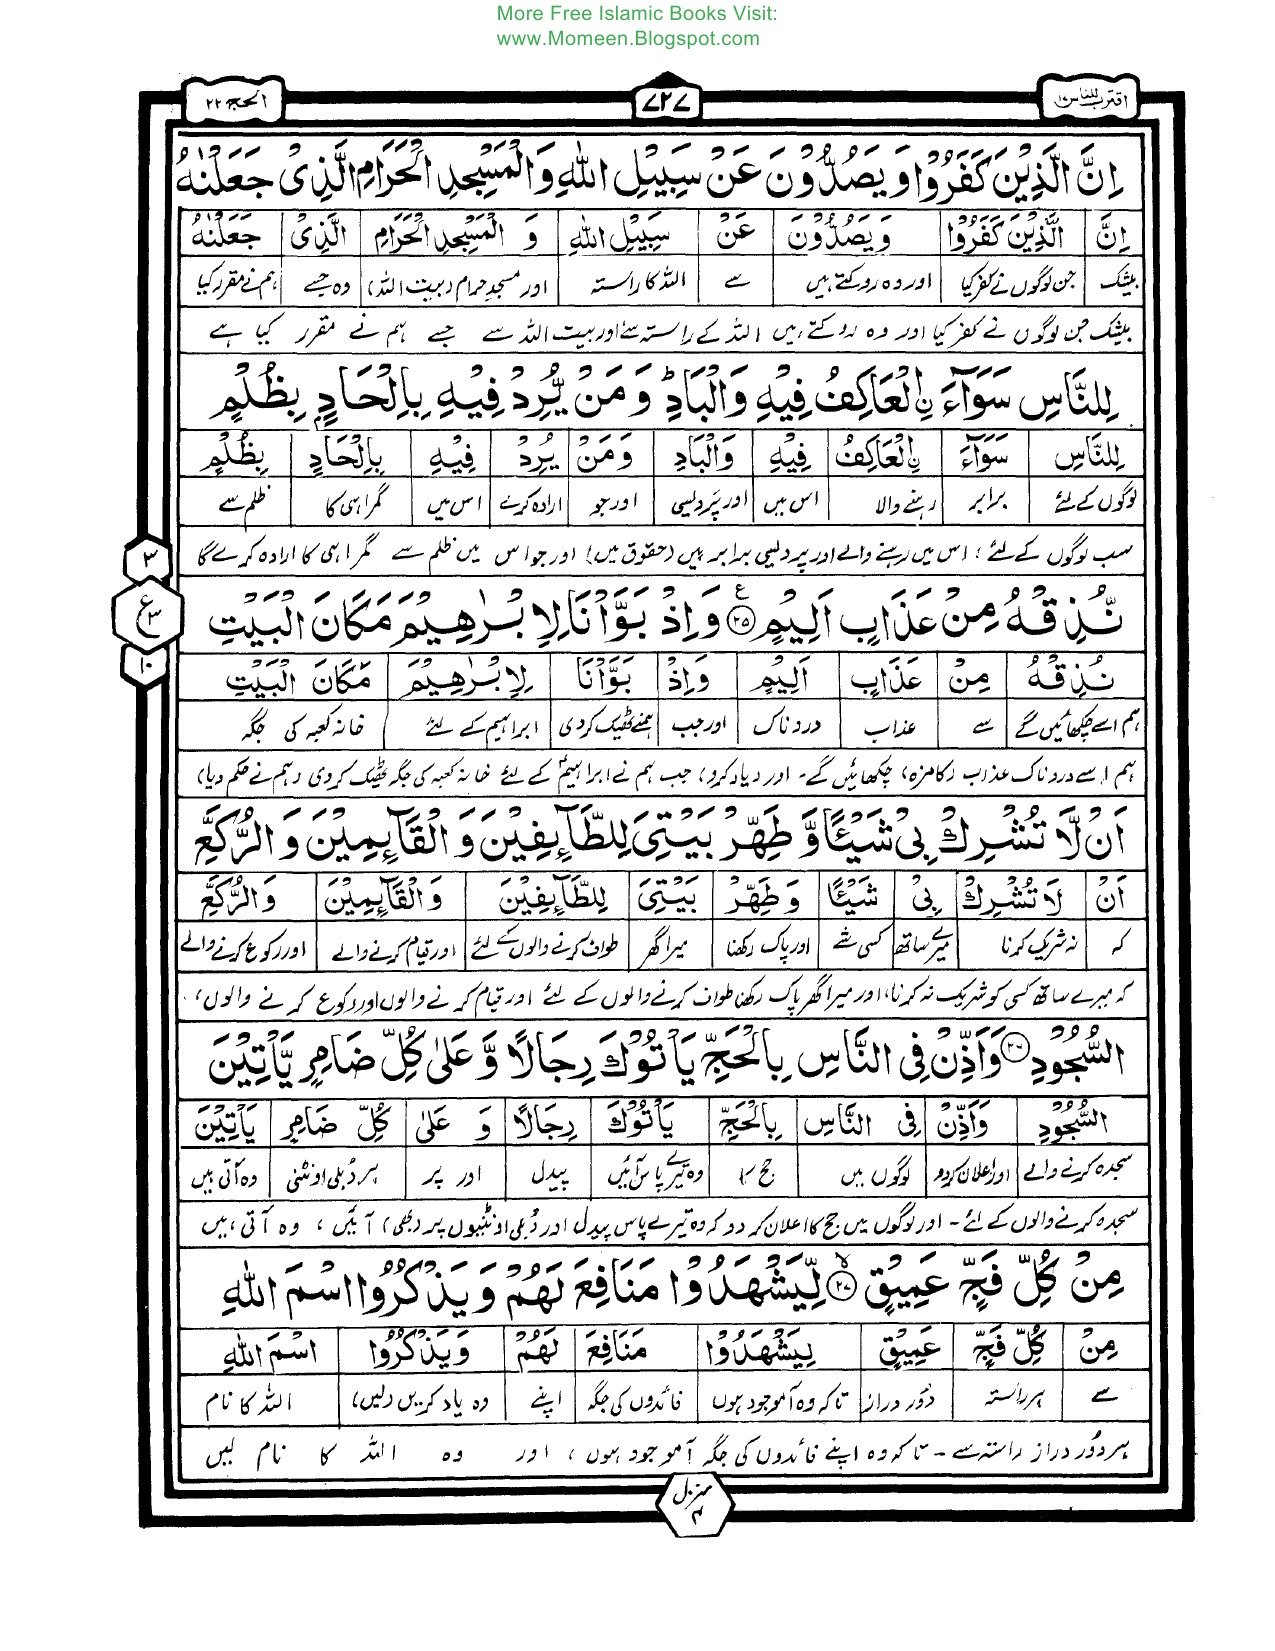 More Free Islamic Books Visit:
www.Momeen.Blogspot.com
اقترب للناس ۱۷ ۷۲۷ الحج ۲۲
اِنَّ الَّذِيْنَ كَفَرُوْا وَيَصُدُّوْنَ عَنْ سَبِيْلِ اللّٰهِ وَالْمَسْجِدِ الْحَرَامِ الَّذِيْ جَعَلْنٰهُ
اِنَّ الَّذِيْنَ كَفَرُوْا وَيَصُدُّوْنَ عَنْ سَبِيْلِ اللّٰهِ وَ الْمَسْجِدِ الْحَرَامِ الَّذِيْ جَعَلْنٰهُ
بیشک جن لوگوں نے کفر کیا اور وہ روکتے ہیں سے اللہ کا راستہ اور مسجد حرام (بیت اللہ) وہ جسے ہم نے مقرر کیا
بیشک جن لوگوں نے کفر کیا اور وہ روکتے ہیں اللہ کے راستہ سے اور بیت اللہ سے جسے ہم نے مقرر کیا ہے
لِلنَّاسِ سَوَآءَ ۨالْعَاكِفُ فِيْهِ وَالْبَادِ ؕ وَمَنْ يُّرِدْ فِيْهِ بِاِلْحَادٍۢ بِظُلْمٍ
لِلنَّاسِ سَوَآءَ ۨالْعَاكِفُ فِيْهِ وَالْبَادِ وَمَنْ يُرِدْ فِيْهِ بِاِلْحَادٍ بِظُلْمٍ
لوگوں کے لئے برابر رہنے والا اس میں اور پردیسی اور جو ارادہ کرے اس میں گمراہی کا ظلم سے
سب لوگوں کے لئے، اس میں رہنے والے اور پردیسی برابر ہیں (حقوق میں) اور جو اس میں ظلم سے گمراہی کا ارادہ کرے گا
۳
ع ۳
۱۰
نُّذِقْهُ مِنْ عَذَابٍ اَلِيْمٍ ۲۵ ع وَاِذْ بَوَّاْنَا لِاِبْرٰهِيْمَ مَكَانَ الْبَيْتِ
نُذِقْهُ مِنْ عَذَابٍ اَلِيْمٍ وَاِذْ بَوَّاْنَا لِاِبْرٰهِيْمَ مَكَانَ الْبَيْتِ
ہم اسے چکھائیں گے سے عذاب دردناک اور جب ہمنے ٹھیک کردی ابراہیم کے لئے خانہ کعبہ کی جگہ
ہم اسے دردناک عذاب (کا مزہ) چکھائیں گے۔ اور (یاد کرو) جب ہم نے ابراہیمؑ کے لئے خانہ کعبہ کی جگہ ٹھیک کردی (ہم نے حکم دیا)
اَنْ لَّا تُشْرِكْ بِيْ شَيْئًا وَّ طَهِّرْ بَيْتِيَ لِلطَّآئِفِيْنَ وَ الْقَآئِمِيْنَ وَ الرُّكَّعِ
اَنْ لَا تُشْرِكْ بِيْ شَيْئًا وَ طَهِّرْ بَيْتِيَ لِلطَّآئِفِيْنَ وَ الْقَآئِمِيْنَ وَ الرُّكَّعِ
کہ نہ شریک کرنا میرے ساتھ کسی شے اور پاک رکھنا میرا گھر طواف کرنے والوں کے لئے اور قیام کرنے والے اور رکوع کرنے والے
کہ میرے ساتھ کسی کو شریک نہ کرنا، اور میرا گھر پاک رکھنا طواف کرنے والوں کے لئے اور قیام کرنے والوں اور رکوع کرنے والوں،
السُّجُوْدِ ۲۶ وَاَذِّنْ فِي النَّاسِ بِالْحَجِّ يَاْتُوْكَ رِجَالًا وَّ عَلٰى كُلِّ ضَامِرٍ يَّاْتِيْنَ
السُّجُوْدِ وَاَذِّنْ فِي النَّاسِ بِالْحَجِّ يَاْتُوْكَ رِجَالًا وَ عَلٰى كُلِّ ضَامِرٍ يَاْتِيْنَ
سجدہ کرنے والے اور اعلان کردو لوگوں میں حج کا وہ تیرے پاس آئیں پیدل اور پر ہر دُبلی اونٹنی وہ آتی ہیں
سجدہ کرنے والوں کے لئے۔ اور لوگوں میں حج کا اعلان کر دو کہ وہ تیرے پاس پیدل اور دُبلی اونٹنیوں پر (بھی) آئیں، وہ آتی ہیں
مِنْ كُلِّ فَجٍّ عَمِيْقٍ ۲۷ لِّيَشْهَدُوْا مَنَافِعَ لَهُمْ وَ يَذْكُرُوا اسْمَ اللّٰهِ
مِنْ كُلِّ فَجٍّ عَمِيْقٍ لِيَشْهَدُوْا مَنَافِعَ لَهُمْ وَ يَذْكُرُوا اسْمَ اللّٰهِ
سے ہر راستہ دُور دراز تاکہ وہ آموجود ہوں فائدوں کی جگہ اپنے وہ یاد کریں (لیں) اللہ کا نام
ہر دُور دراز راستہ سے۔ تاکہ وہ اپنے فائدوں کی جگہ آموجود ہوں، اور وہ اللہ کا نام لیں
منزل ۴